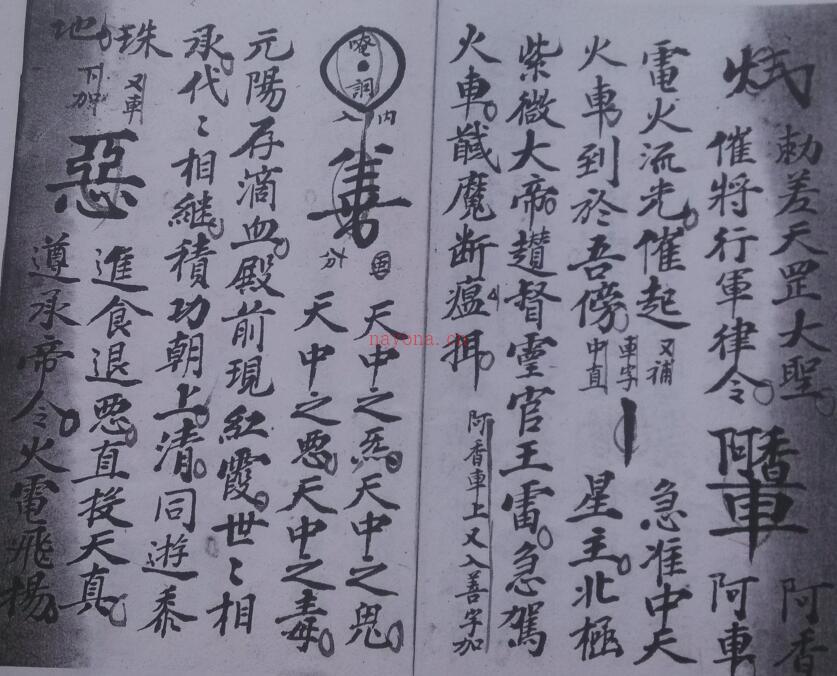 勅差天罡大聖
阿香
催將行軍律令
阿車
電火流光催起
又補
急准中天
火車到於吾傍
車字
中直
星主北極
紫微大帝趲督靈官王雷急駕
火車馘魔断瘟
阿香車上又入善字加
唵
詞
内
入
天中之炁天中之鬼
天中之惡天中之毒
元陽存滴血殿前現紅霞世〻相
承代〻相継積功朝上清同遊黍
珠
又車
地
下加
惡
進食退惡直投天真
遵承帝令火電飛揚
nayona.cn